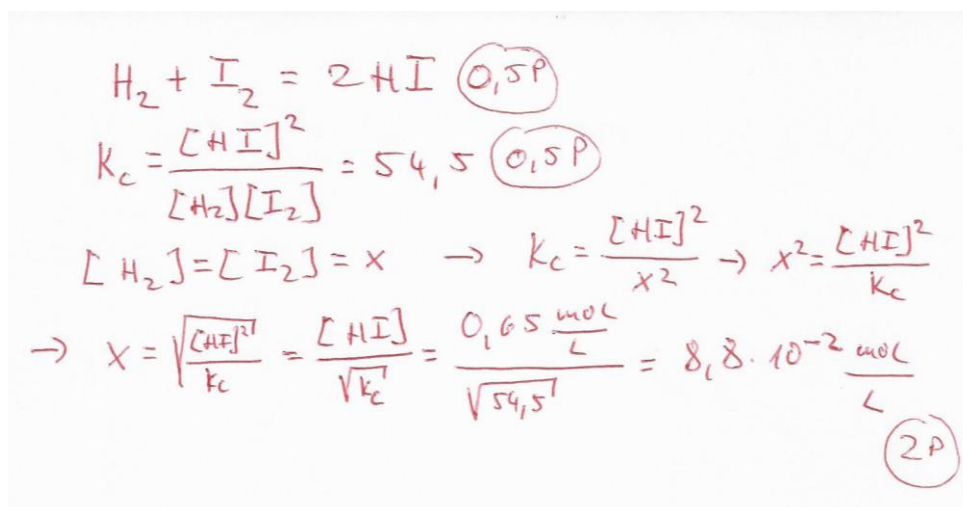 H₂ + I₂ = 2 HI (0,5P)
K_c = [HI]² / [H₂][I₂] = 54,5 (0,5 P)
[H₂] = [I₂] = x → K_c = [HI]² / x² → x² = [HI]² / K_c
→ x = √([HI]² / K_c) = [HI] / √K_c = 0,65 mol/L / √54,5 = 8,8 · 10⁻² mol/L
(2P)